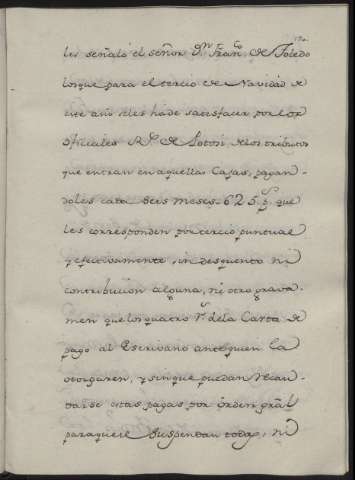 les señaló el señor D.ⁿ Fran.ᶜᵒ de Toledo
los que para el tercio de Navidad de
este año se les ha de satisfacer por los
oficiales R.ˢ de Potosi de los tributos
que entran en aquellas Cajas, pagan
doles cada seis meses 625 p.ˢ que
les corresponden por tercio puntual
y efectivamente, sin desquento ni
contribucion alguna, ni otro grava
men que los quatro r.ˢ de la Carta de
pago al Escrivano ante quien la
otorgaren, y sin que puedan recau
darse otas pagas, por órden gral
para que se suspendan todas, ni